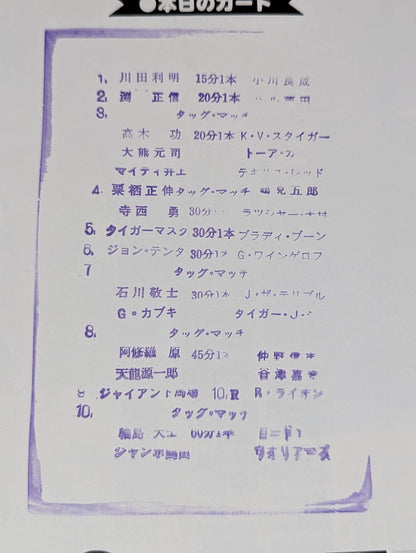 ●本日のカード
1. 川田利明 15分1本 小川良成
2. 渕 正信 20分1本
3. タッグ・マッチ
高木 功 20分1本 K・V・スタイガー
大熊元司 トーア・カ
マイティ井上 レッド
4. 栗栖正伸 タッグ・マッチ 鶴見五郎
寺西 勇 30分 ラッシャー・木村
5. タイガーマスク 30分1本 ブラディ・ブーン
6. ジョン・テンタ 30分1 G・ワインゲロフ
7 タッグ・マッチ
石川敬士 30分1本 J・ザ・テリブル
G・カブキ タイガー・J・
8. タッグ・マッチ
阿修羅 原 45分1 仲野信市
天龍源一郎 谷津嘉章
9 ジャイアント馬場 10,R R・ライオン
10. タッグ・マッチ
輪島 大士 60分1本 ロード
ジャンボ鶴田 ウオリアーズ